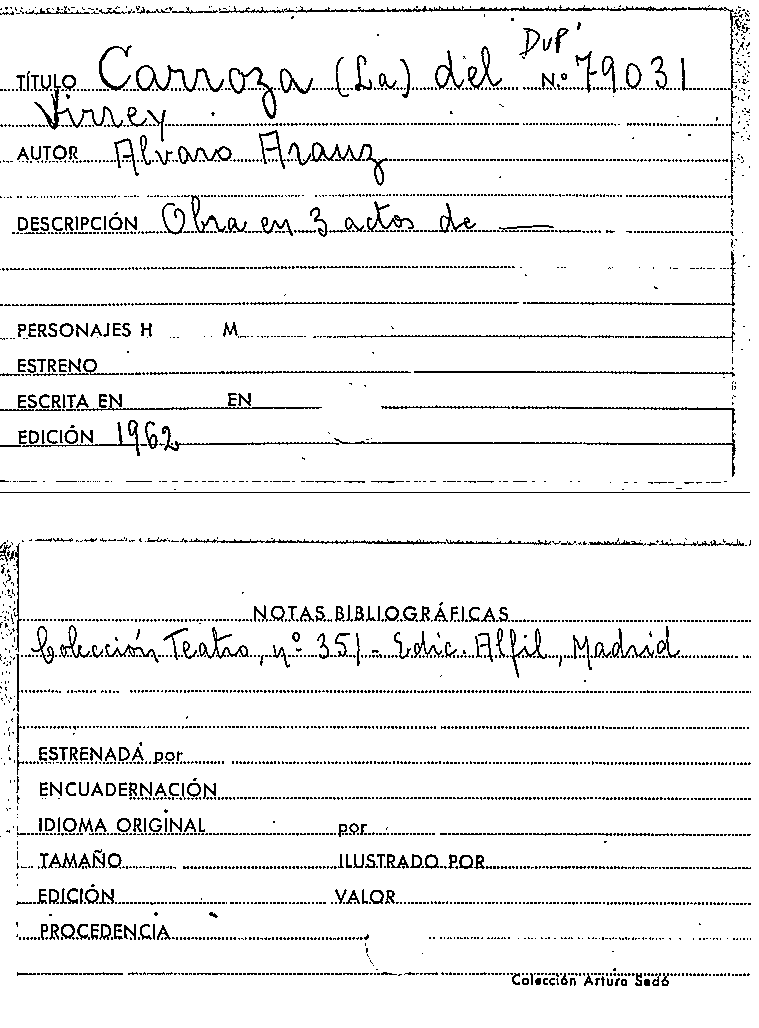 Dup'
TÍTULO Carroza (La) del N.º 79031
Virrey
AUTOR Alvaro Arauz
DESCRIPCIÓN Obra en 3 actos de —
PERSONAJES H M
ESTRENO
ESCRITA EN EN
EDICIÓN 1962
NOTAS BIBLIOGRÁFICAS
Colección Teatro, nº 351 - Edic. Alfil, Madrid
ESTRENADA por
ENCUADERNACIÓN
IDIOMA ORIGINAL por
TAMAÑO ILUSTRADO POR
EDICIÓN VALOR
PROCEDENCIA
Colección Arturo Sedó